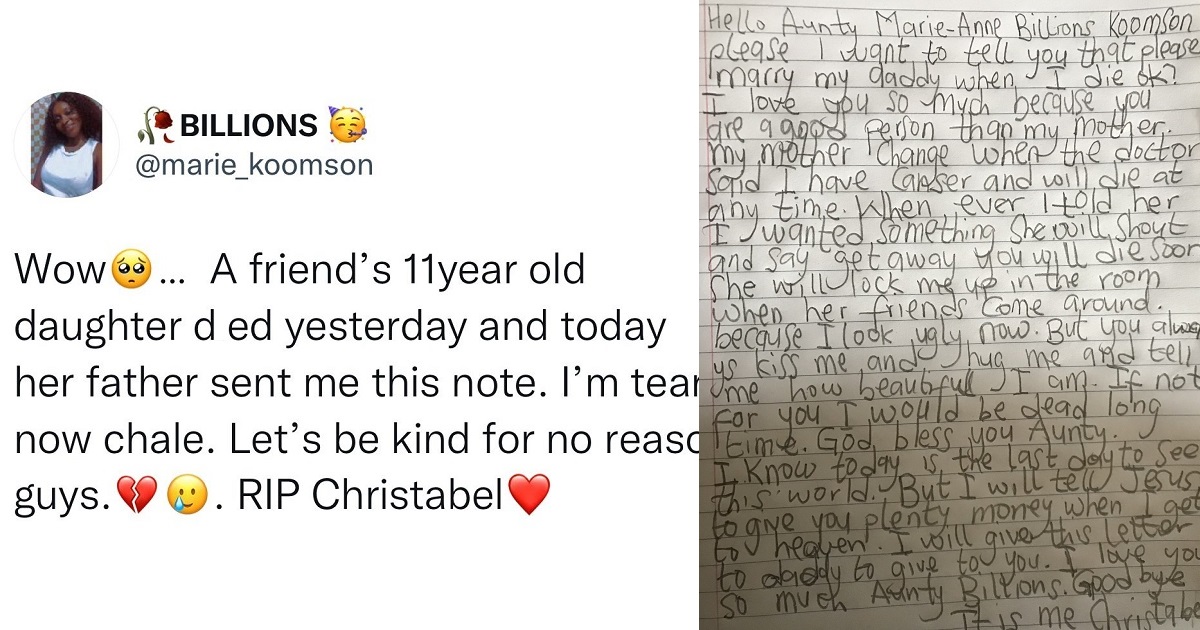 🥀BILLIONS 🥳
@marie_koomson
Wow🥺... A friend's 11year old
daughter d ed yesterday and today
her father sent me this note. I'm tear
now chale. Let's be kind for no reaso
guys.💔🥲. RIP Christabel❤️
Hello Aunty Marie-Anne Billions Koomson
please I want to tell you that please
marry my daddy when I die ok?
I love you so much because you
are a good person than my mother.
my mother change when the doctor
said I have canser and will die at
any time. When ever I told her
I wanted something she will shout
and say get away you will die soon
she will lock me up in the room
when her friends come around.
because I look ugly now. But you alwa
ys kiss me and hug me and tell
me how beautiful I am. If not
for you I would be dead long
time. God bless you Aunty.
I know today is the last day to see
this world. But I will tell Jesus
to give you plenty money when I get
to heaven. I will give this letter
to daddy to give to you. I love you
so much Aunty Billions. Goodbye
It is me Christabe